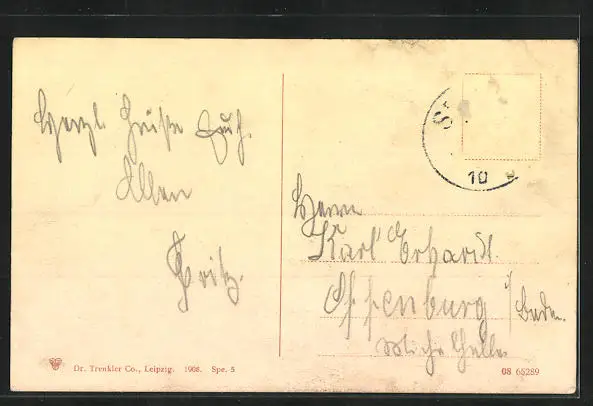 Herzl. Grüße Euch
Allen
Fritz.
Herrn
Karl Erhardt.
Offenburg i/ Baden.
10
Dr. Trenkler Co., Leipzig. 1908. Spe. 5
08 65289